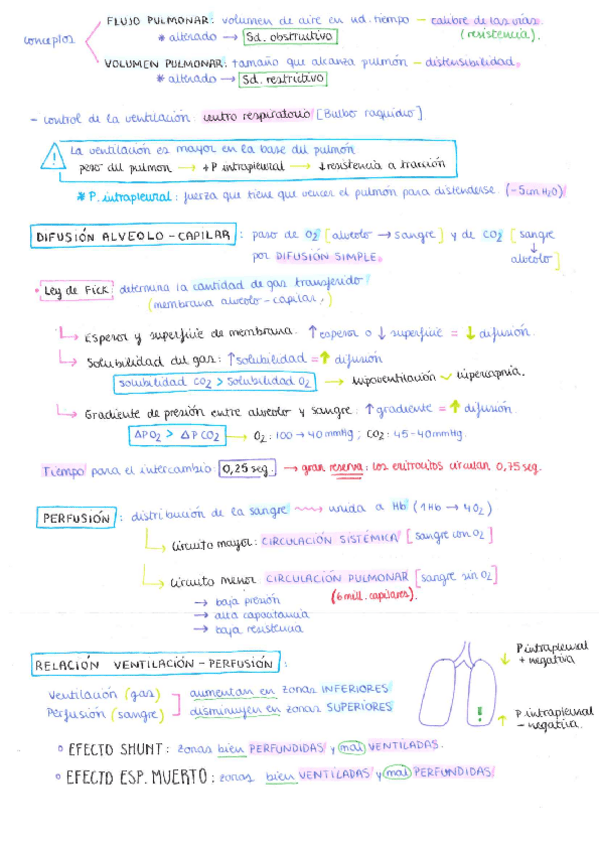 conceptos
FLUJO PULMONAR: volumen de aire en ud. tiempo – calibre de las vías.
* alterado → Sd. obstructivo (resistencia).
VOLUMEN PULMONAR: tamaño que alcanza pulmón – distensibilidad.
* alterado → Sd. restrictivo
- control de la ventilación: centro respiratorio [Bulbo raquídeo]
! La ventilación es mayor en la base del pulmón
peso del pulmón → +P intrapleural → ↓resistencia a tracción
* P. intrapleural: fuerza que tiene que vencer el pulmón para distenderse. (-5cmH₂O)
DIFUSIÓN ALVEOLO-CAPILAR: paso de O₂ [alveolo → sangre] y de CO₂ [sangre
↓
por DIFUSIÓN SIMPLE. alveolo]
• Ley de Fick: determina la cantidad de gas transferido
(membrana alveolo-capilar.)
↳ Espesor y superficie de membrana: ↑ espesor o ↓ superficie = ↓ difusión.
↳ Solubilidad del gas: ↑solubilidad = ↑ difusión
solubilidad CO₂ > solubilidad O₂ → hipoventilación – hipercapnia.
↳ Gradiente de presión entre alveolo y sangre: ↑ gradiente = ↑ difusión.
ΔPO₂ > ΔPCO₂ → O₂: 100 → 40mmHg ; CO₂: 45-40mmHg.
Tiempo para el intercambio: 0,25 seg. → gran reserva: los eritrocitos circulan 0,75 seg.
PERFUSIÓN: distribución de la sangre → unida a Hb (1Hb → 4O₂)
↳ Circuito mayor: CIRCULACIÓN SISTÉMICA [sangre con O₂]
↳ Circuito menor: CIRCULACIÓN PULMONAR [sangre sin O₂]
→ baja presión (6 mill. capilares).
→ alta capacitancia
→ baja resistencia
RELACIÓN VENTILACIÓN-PERFUSIÓN:
↓ P intrapleural
+ negativa
Ventilación (gas) aumentan en zonas INFERIORES
Perfusión (sangre) disminuyen en zonas SUPERIORES
! ↑ P intrapleural
- negativa.
° EFECTO SHUNT: zonas bien PERFUNDIDAS y mal VENTILADAS.
° EFECTO ESP. MUERTO: zonas bien VENTILADAS y mal PERFUNDIDAS